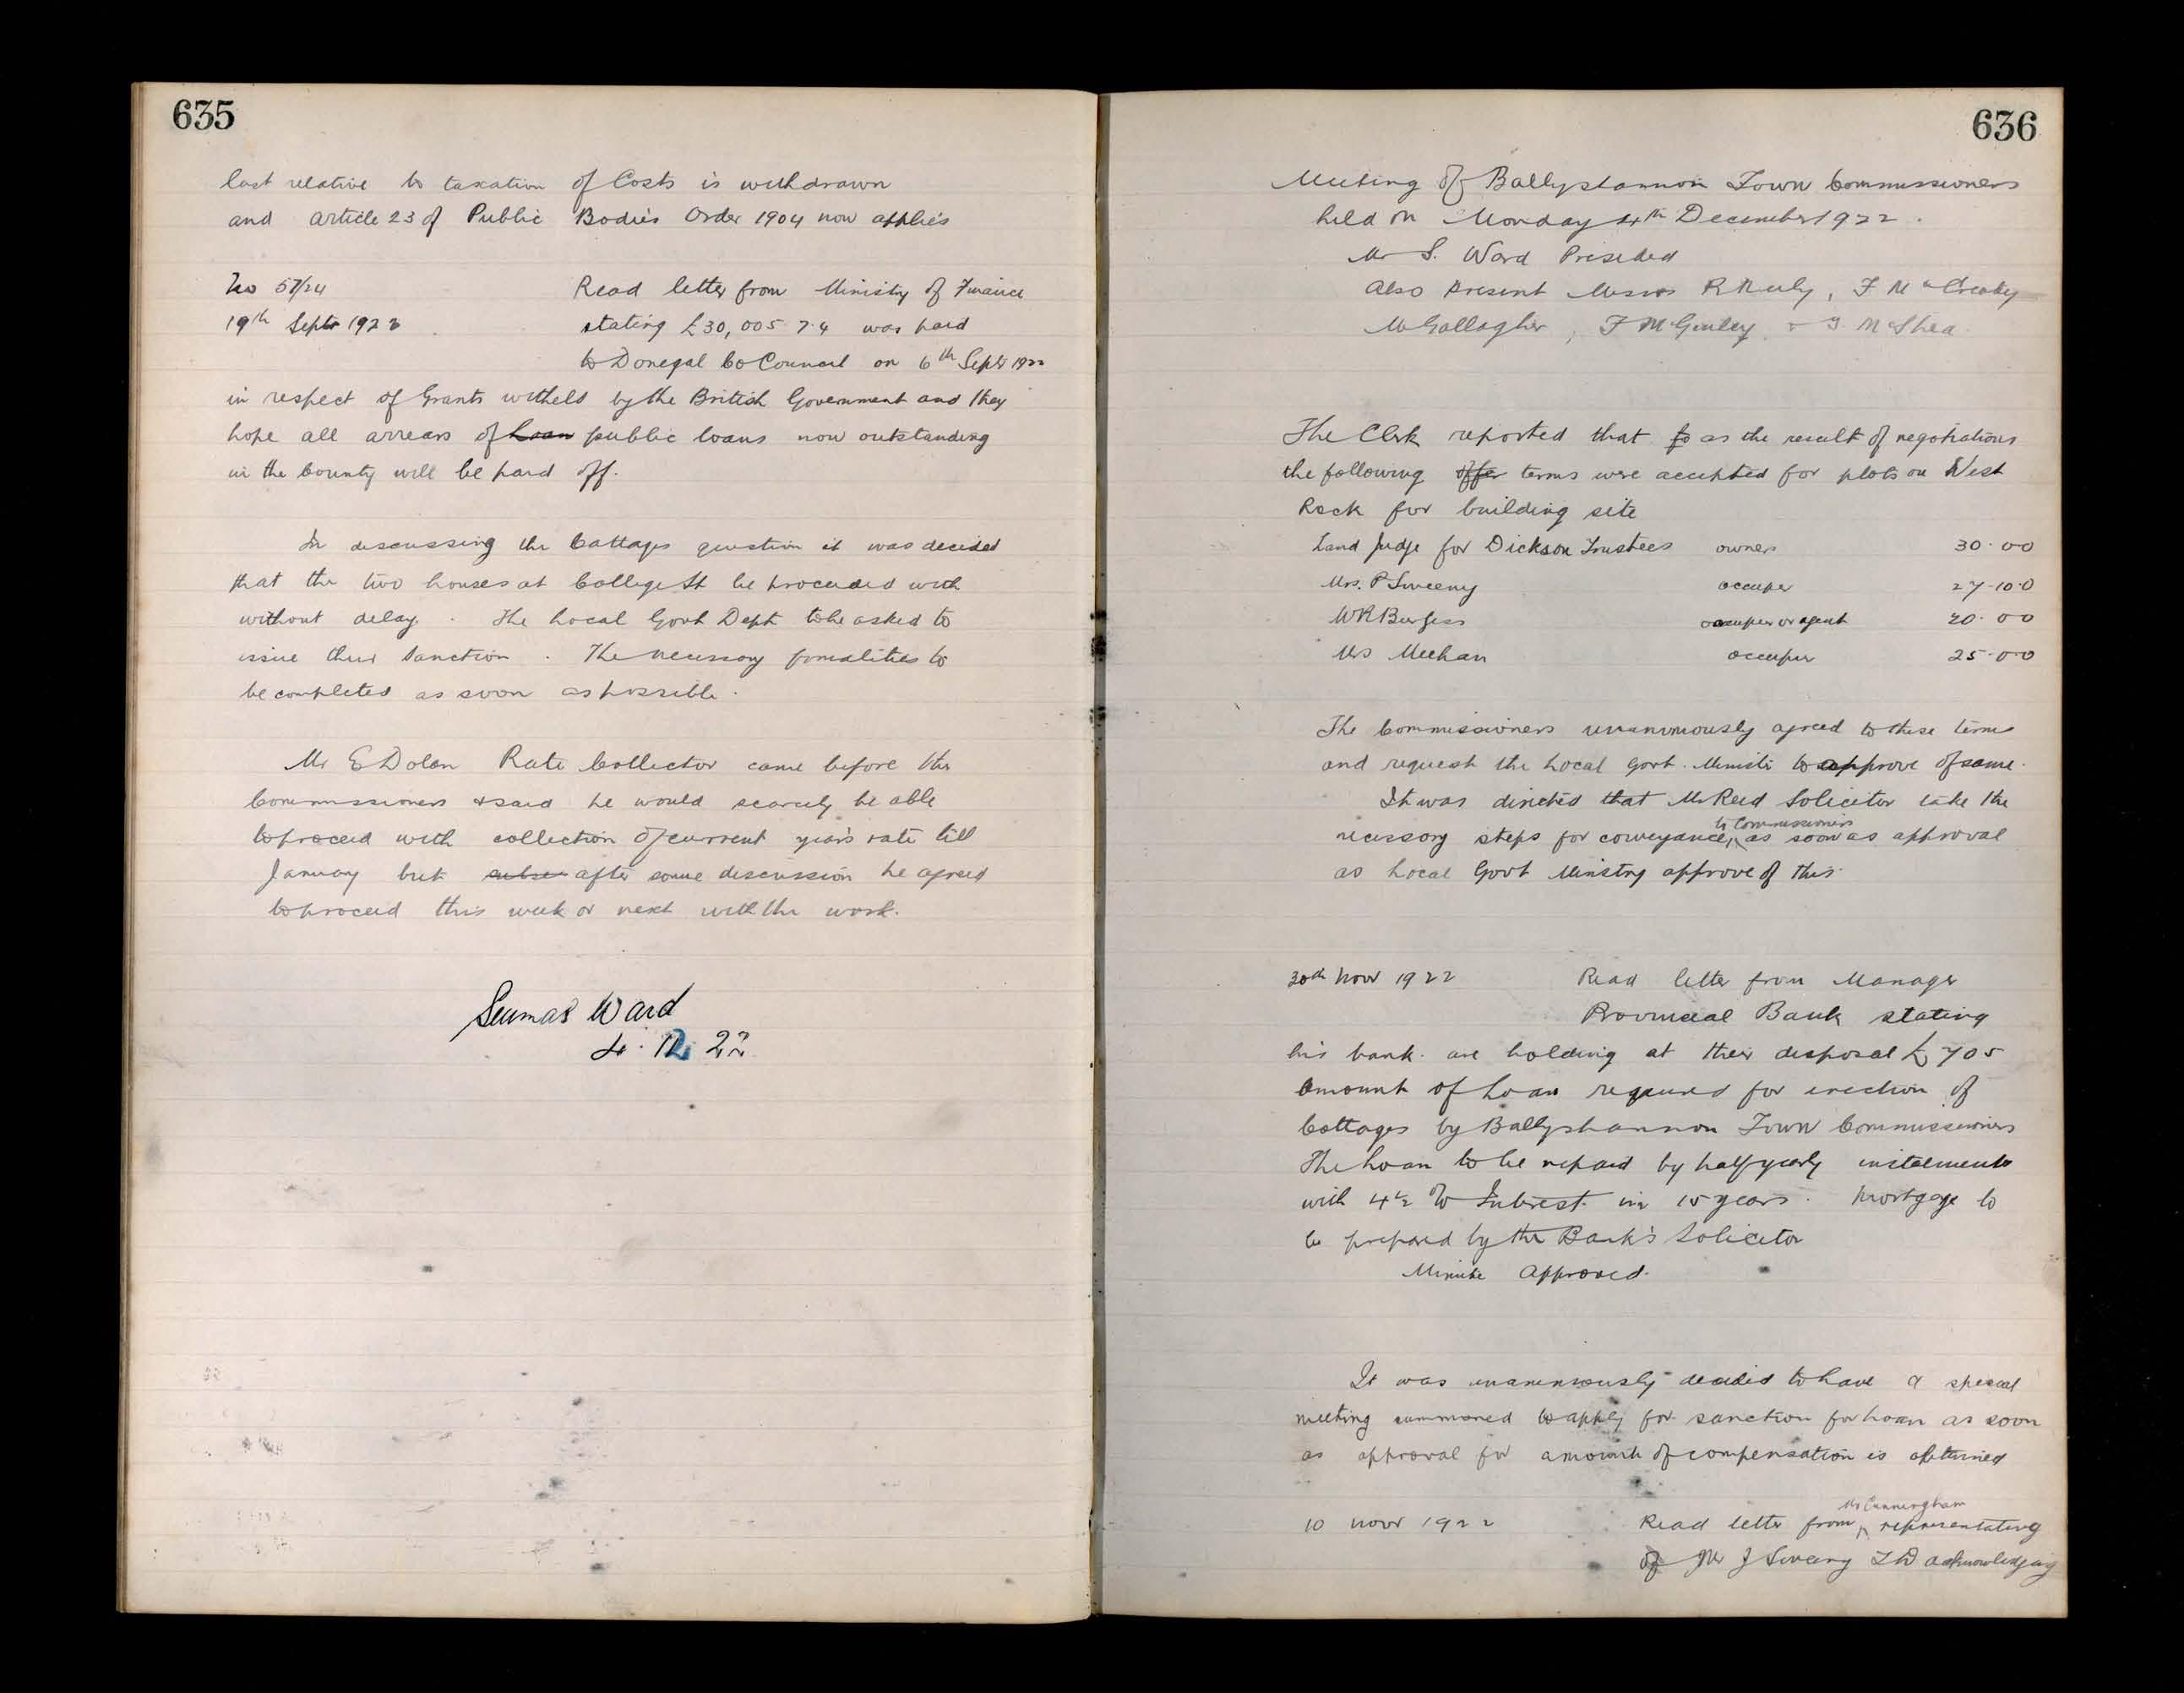 635
last relative to taxation of Costs is withdrawn
and article 23 of Public Bodies Order 1904 now applies
No 57/24 Read letter from Ministry of Finance
19th Septr 1922 stating £30,005.7.4 was paid
to Donegal Co Council on 6th Septr 1922
in respect of Grants witheld by the British Government and they
hope all arrears of loan public loans now outstanding
in the County will be paid off.
In discussing the Cottages question it was decided
that the two houses at College St be proceeded with
without delay. The Local Govt Dept to be asked to
issue their sanction. The necessary formalities to
be completed as soon as possible.
Mr E Dolan Rate Collector came before the
Commissioners & said he would scarcely be able
to proceed with collection of current year's rate till
January but after some discussion he agreed
to proceed this week or next with the work.
Seumas Ward
4.12.22
636
Meeting of Ballyshannon Town Commissioners
held on Monday 4th December 1922.
Mr S. Ward Presided
Also present Messrs R Neely, F
M Gallagher, F McGinley & McShea
The Clerk reported that to as the result of negotiations
the following offer terms were accepted for plots on West
Rock for building site
Land Judge for Dickson Trustees owners 30.0.0
Mrs. P Sweeny occupier 27-10.0
WR Burgess occupier or agent 20.0.0
Mrs Meehan occupier 25.0.0
The Commissioners unanimously agreed to these terms
and request the Local Govt. Ministr to approve of same.
It was directed that Mr Reid Solicitor take the
to Commissioners
necessary steps for conveyance, as soon as approval
as Local Govt Ministry approve of this.
30th Novr 1922 Read letter from Manager
Provincial Bank stating
his bank are holding at their disposal £705
amount of Loan required for erection of
Cottages by Ballyshannon Town Commissioners
The Loan to be repaid by half yearly instalments
with 4½ % Interest in 15 years. Mortgage to
be prepared by the Bank's Solicitor
Minute approved.
It was unanimously decided to have a special
meeting summoned to apply for sanction for Loan as soon
as approval for amount of compensation is obtained
Mr Cunningham
10 Novr 1922 Read letter from representating
of Mr J Sweeny T.D acknowledging